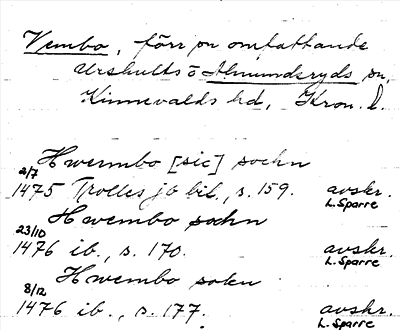 Vembo, förr sn omfattande
Urshults o Almundsryds sn,
Kinnevalds hd, Kron. l.
Hwembo [sic] sochn
2/7
1475 Trolles jb bil., s. 159. avskr.
L. Sparre
Hwembo sochn
23/10
1476 ib., s. 170. avskr.
L. Sparre
Hwembo sokn
8/12
1476 ib., s. 177. avskr.
L. Sparre